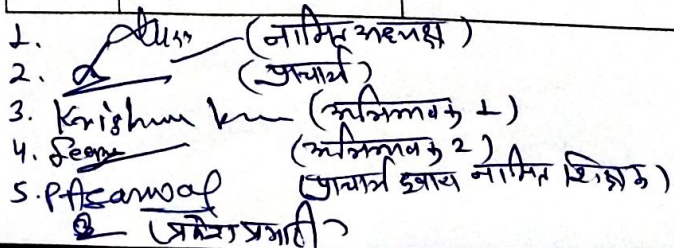 1. (नामित अध्यक्ष)
2. (प्राचार्य)
3. Krishna (अभिभावक 1)
4. Seema (अभिभावक 2)
5. P. Agarwal (प्राचार्य द्वारा नामित शिक्षक)
(प्रवेश प्रभारी)